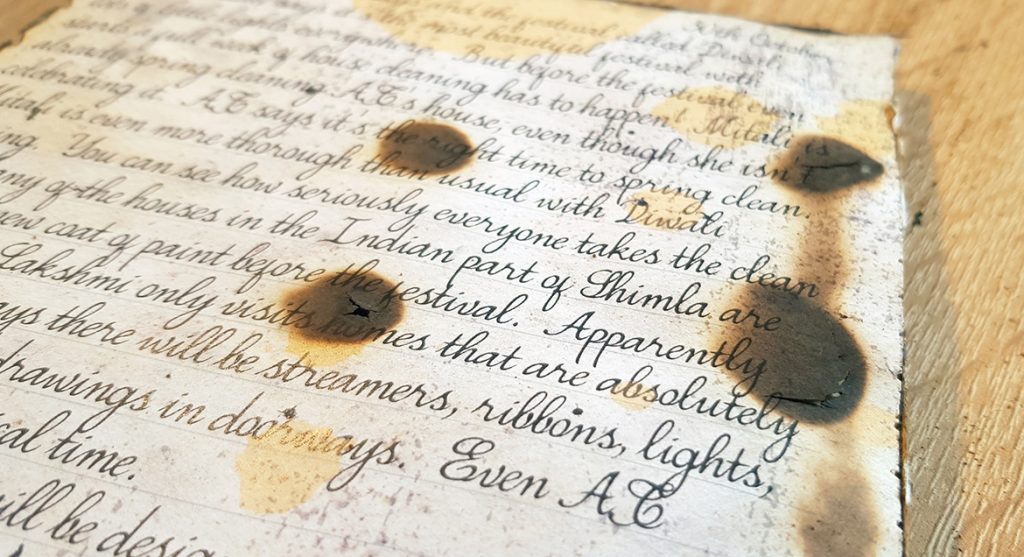 October
the festival called Diwali
the most beautiful festival with
everywhere. But before the festival can
a full week of house cleaning has to happen! Mitali is
already spring cleaning AC's house, even though she isn't
celebrating it. AC says it's the right time to spring clean.
Mitali is even more thorough than usual with Diwali
ing. You can see how seriously everyone takes the clean
any of the houses in the Indian part of Shimla are
new coat of paint before the festival. Apparently
Lakshmi only visits homes that are absolutely
ays there will be streamers, ribbons, lights,
drawings in doorways. Even AC
cal time.
will be desig